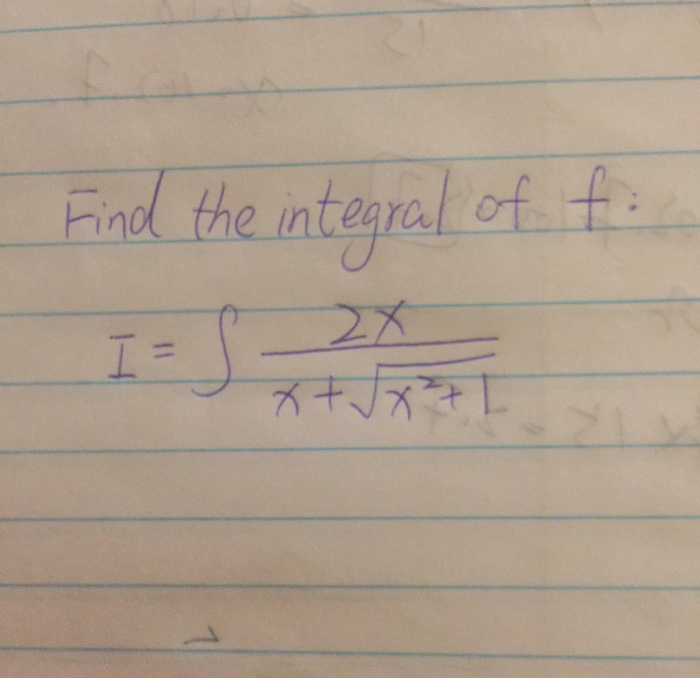 Find the integral of f:
I = ∫ 2x / (x + √(x² + 1))